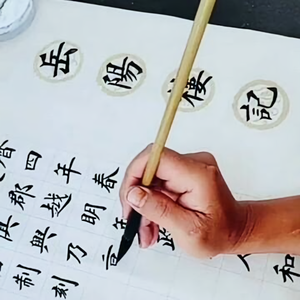 岳陽樓記
四年春
郡越明年 人和
具興乃
制刻